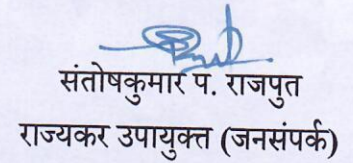 संतोषकुमार प. राजपुत
राज्यकर उपायुक्त (जनसंपर्क)